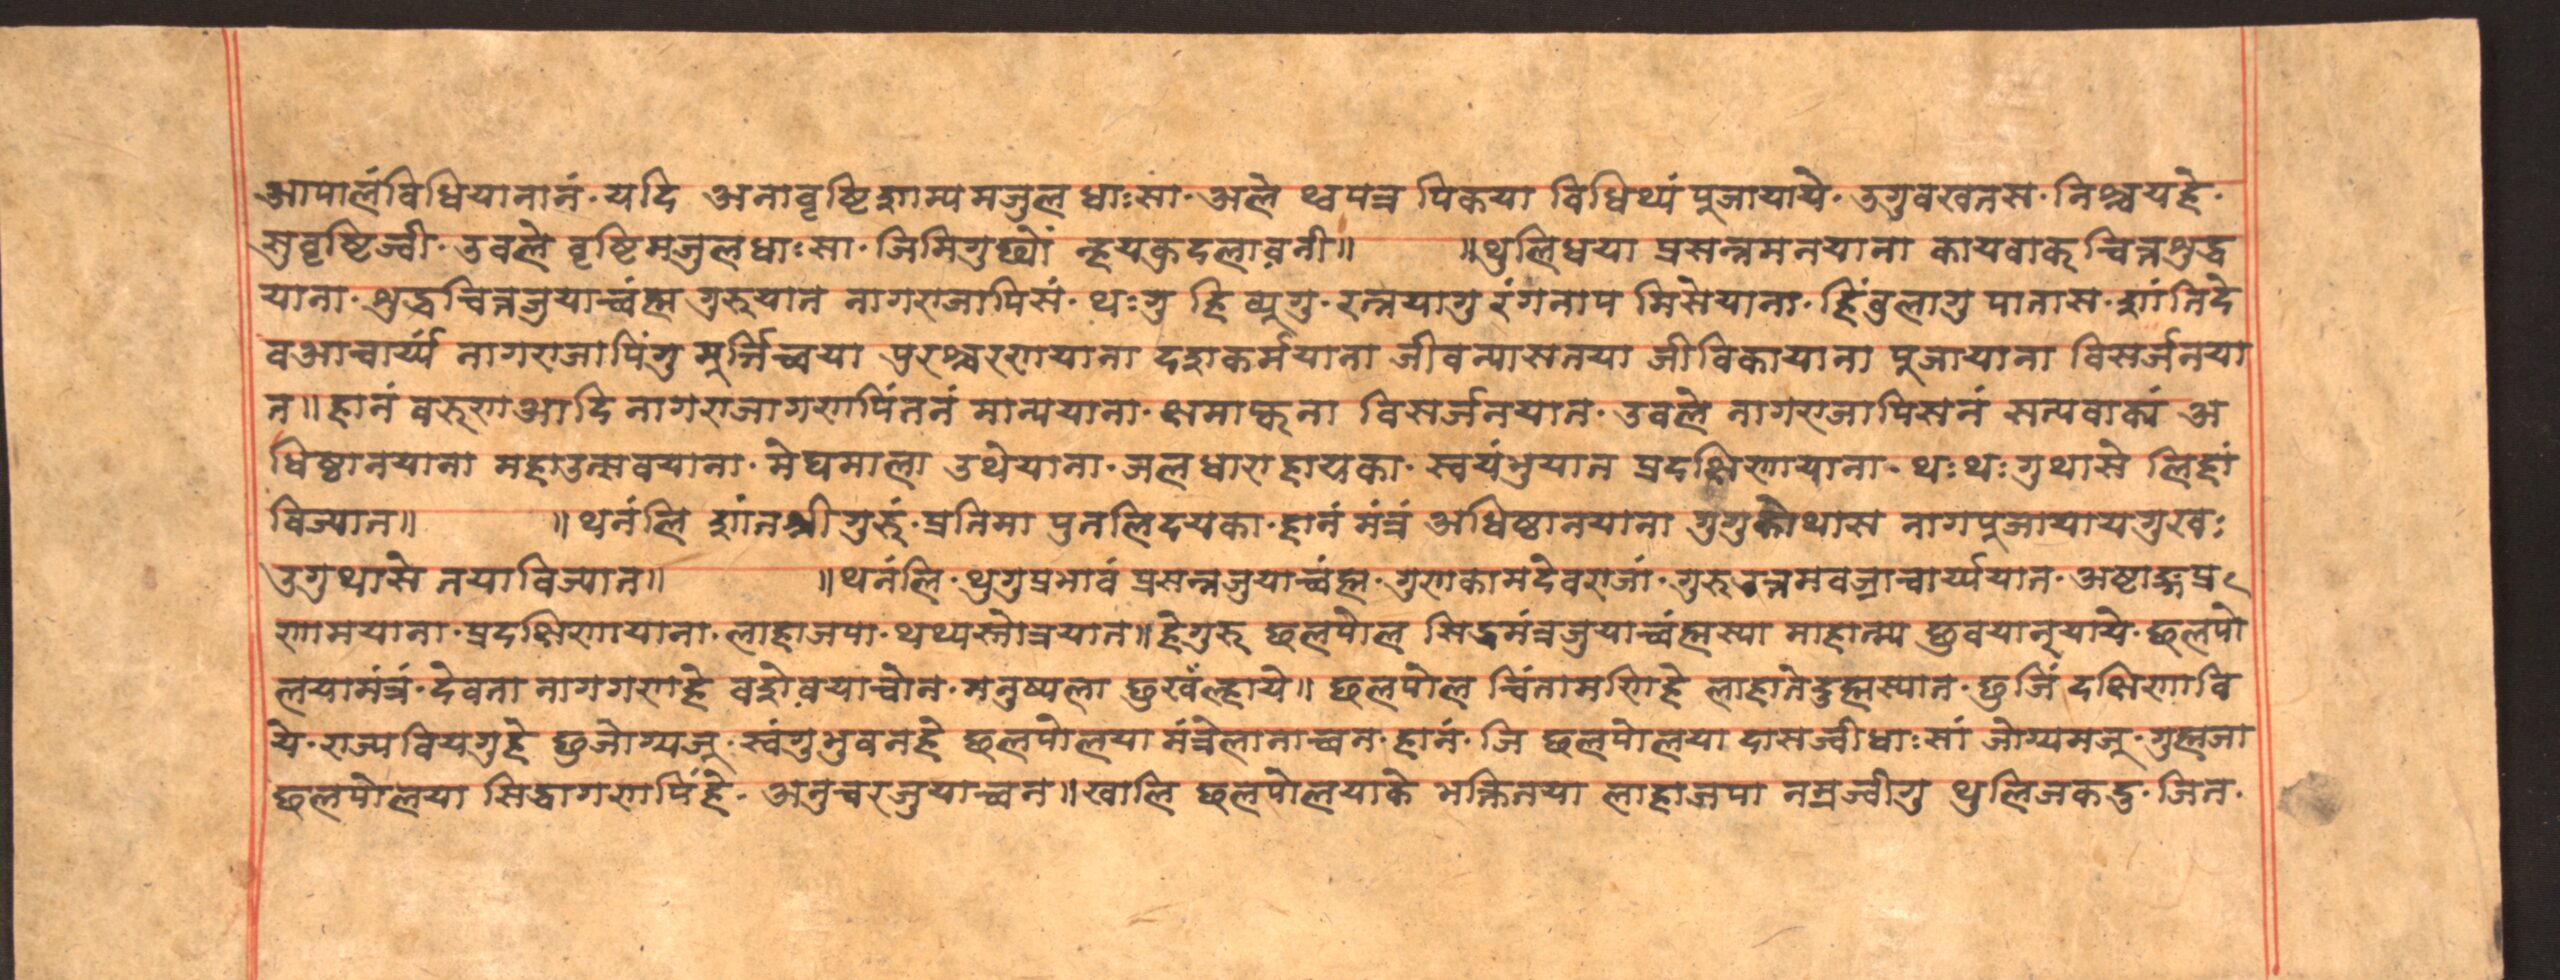 आपालंविधियानानं· यदि अनावृष्टिशाम्यमजुल धाःसा· अले थ्वपत्र पिकया विधिथ्यं पुजायाये· उगुवखतस· निश्चयहे·
सुवृष्टिज्वी· उवले वृष्टिमजुलधाःसा· जिमिगुछ्यों न्हयकुदलाव़नी॥ ॥थुलिधया प्रसन्नमनयाना कायवाक्चित्तशुद्ध
याना· शुद्धचित्तजुयाच्वंह्म गुरुयात नागराजापिसं· थःगु हि व्यूगु· रत्नयागु रंगनाप मिसेयाना· हिंवुलागु पातास· शांतिदे
वआचार्य्यं नागराजापिंगु मूर्त्तिच्वया पुरश्चरणयाना दशकर्मयाना जीवन्यासतया जीविकायाना पुजायाना विसर्जनया
त॥ हानं वरुणआदि नागराजागणपिंतनं मान्ययाना· क्षमाफ्वना विसर्जनयात· उवले नागराजापिसनं सत्यवाक्यं अ
धिष्ठानयाना महाउत्सवयाना· मेघमाला उथेयाना· जलधारा हायका· स्वयंभुयात प्रदक्षिणायाना· थःथःगुथासे लिहां
विज्यात॥ ॥ थनंलि शांतश्री गुरुं· प्रतिमा पुनलिदयका· हानं मंत्रं अधिष्ठानयाना गुगु थास नागपुजायायगुखः
उगुथासे तयाविज्यात॥ ॥थनंलि· थुगुप्रभावं प्रसन्नजुयाच्वंह्म· गुणकामदेवराजां· गुरुउत्तमवज्राचार्य्ययात· अष्टाङ्गप्र
णामयाना· प्रदक्षिणायाना· लाहाजपा· थथ्यस्तोत्रयात॥हेगुरु छलपोल सिद्धमंत्रजुयाच्वंह्मस्या माहात्म्य छुवयानयाये· छलपो
लयामंत्रं· देवता नागगणहे वशेव़याच्वोन· मनुष्यला छुखंल्हाये॥ छलपोल चिंतामणिहे लाहातेदुह्मस्यात· छुजिं दक्षिणावि
ये· राज्यवियगुहे छुजोग्यजू· स्वंगुभुवनहे छलपोलया मंत्रेलानाच्वन· हानं· जि छलपोलया दासज्वीधाःसां जोग्यमजू· गुह्मजा
छलपोलया सिद्धागणपिंहे· अनुचरजुयाच्वन॥खालि छलपोलयाके भक्तितया लाहाजपा नम्रज्वीगु थुलिजकदु· जित·